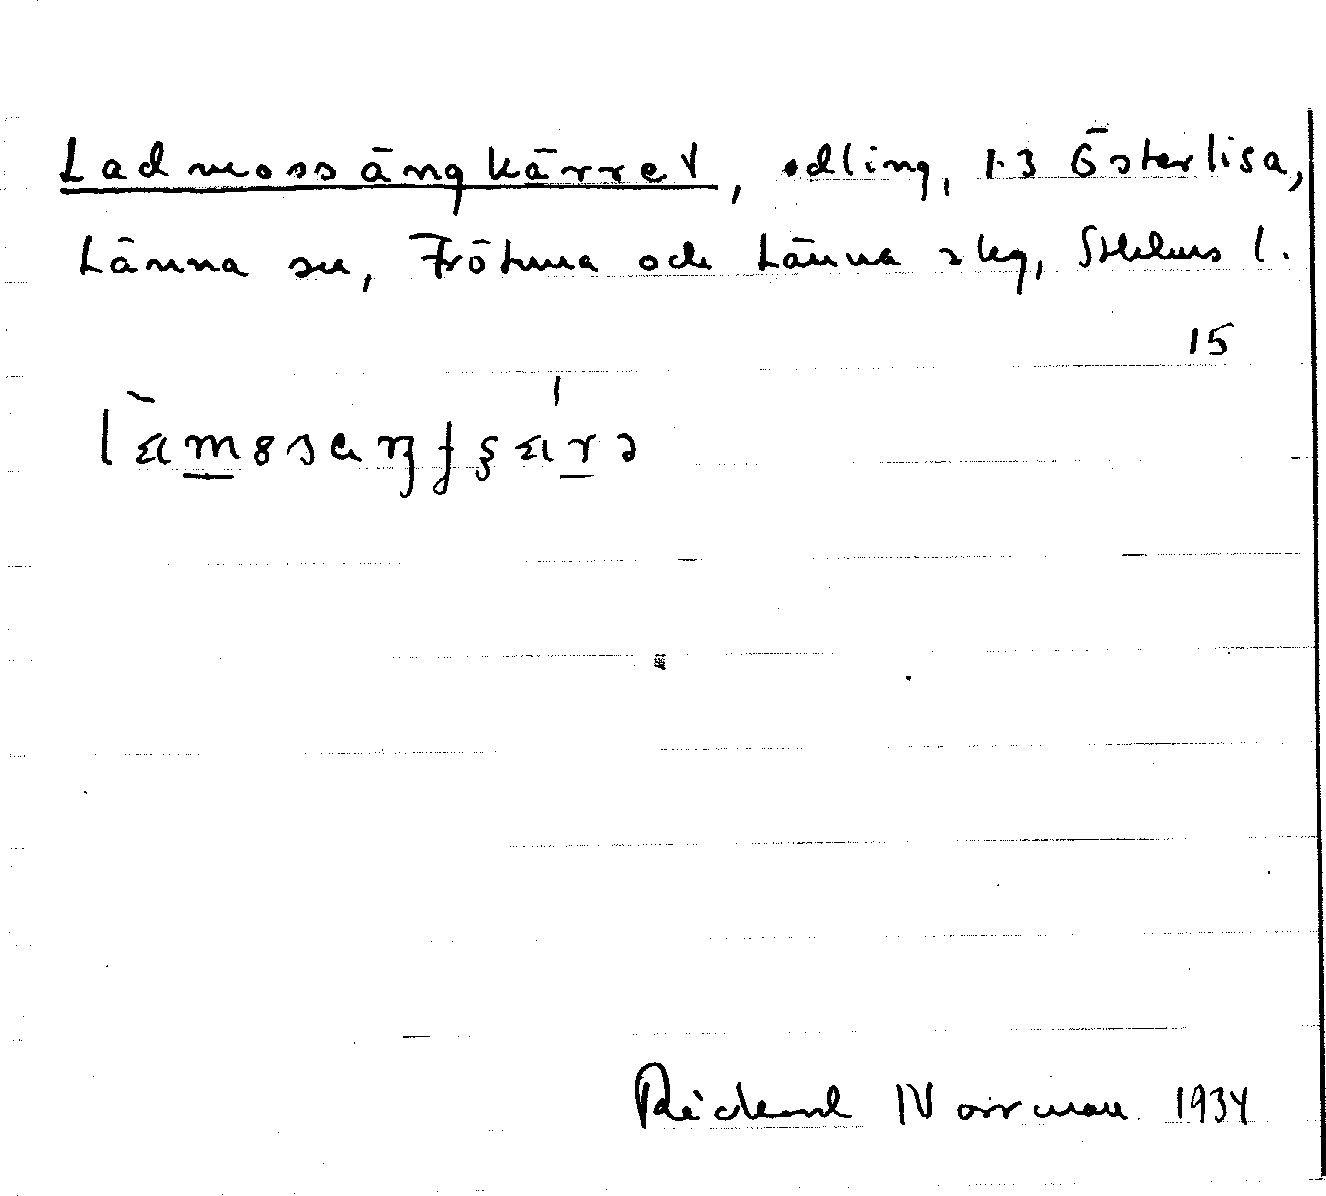 Ladmossängkärret, odling, 1-3 Österlisa,
Länna sn, Frötuna och Länna skg, Sthlms l.
15
Rickard Norrman 1934